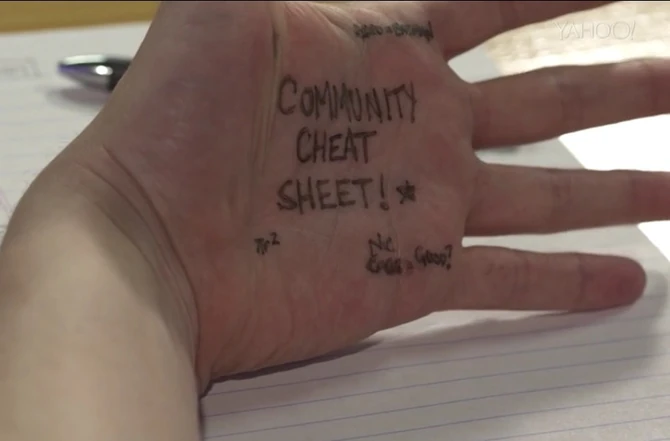 YAHOO!
COMMUNITY
CHEAT
SHEET! ★
πr²
Good?